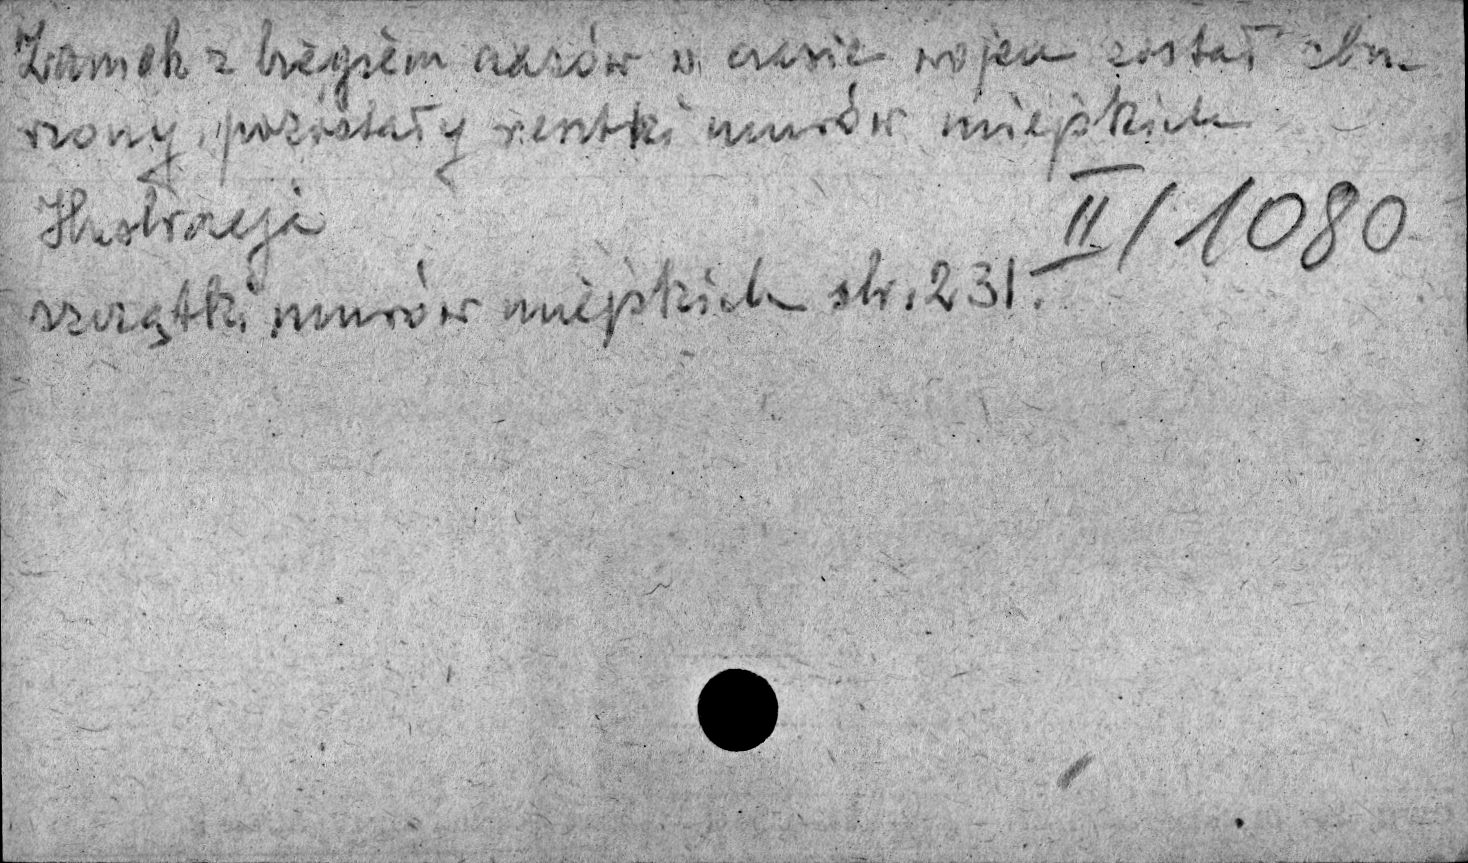 Zamek z biegiem czasów w czasie wojen został zbu-
rzony, pozostały resztki murów miejskich
Ilustracja
II/1080
szczątki murów miejskich str. 231.